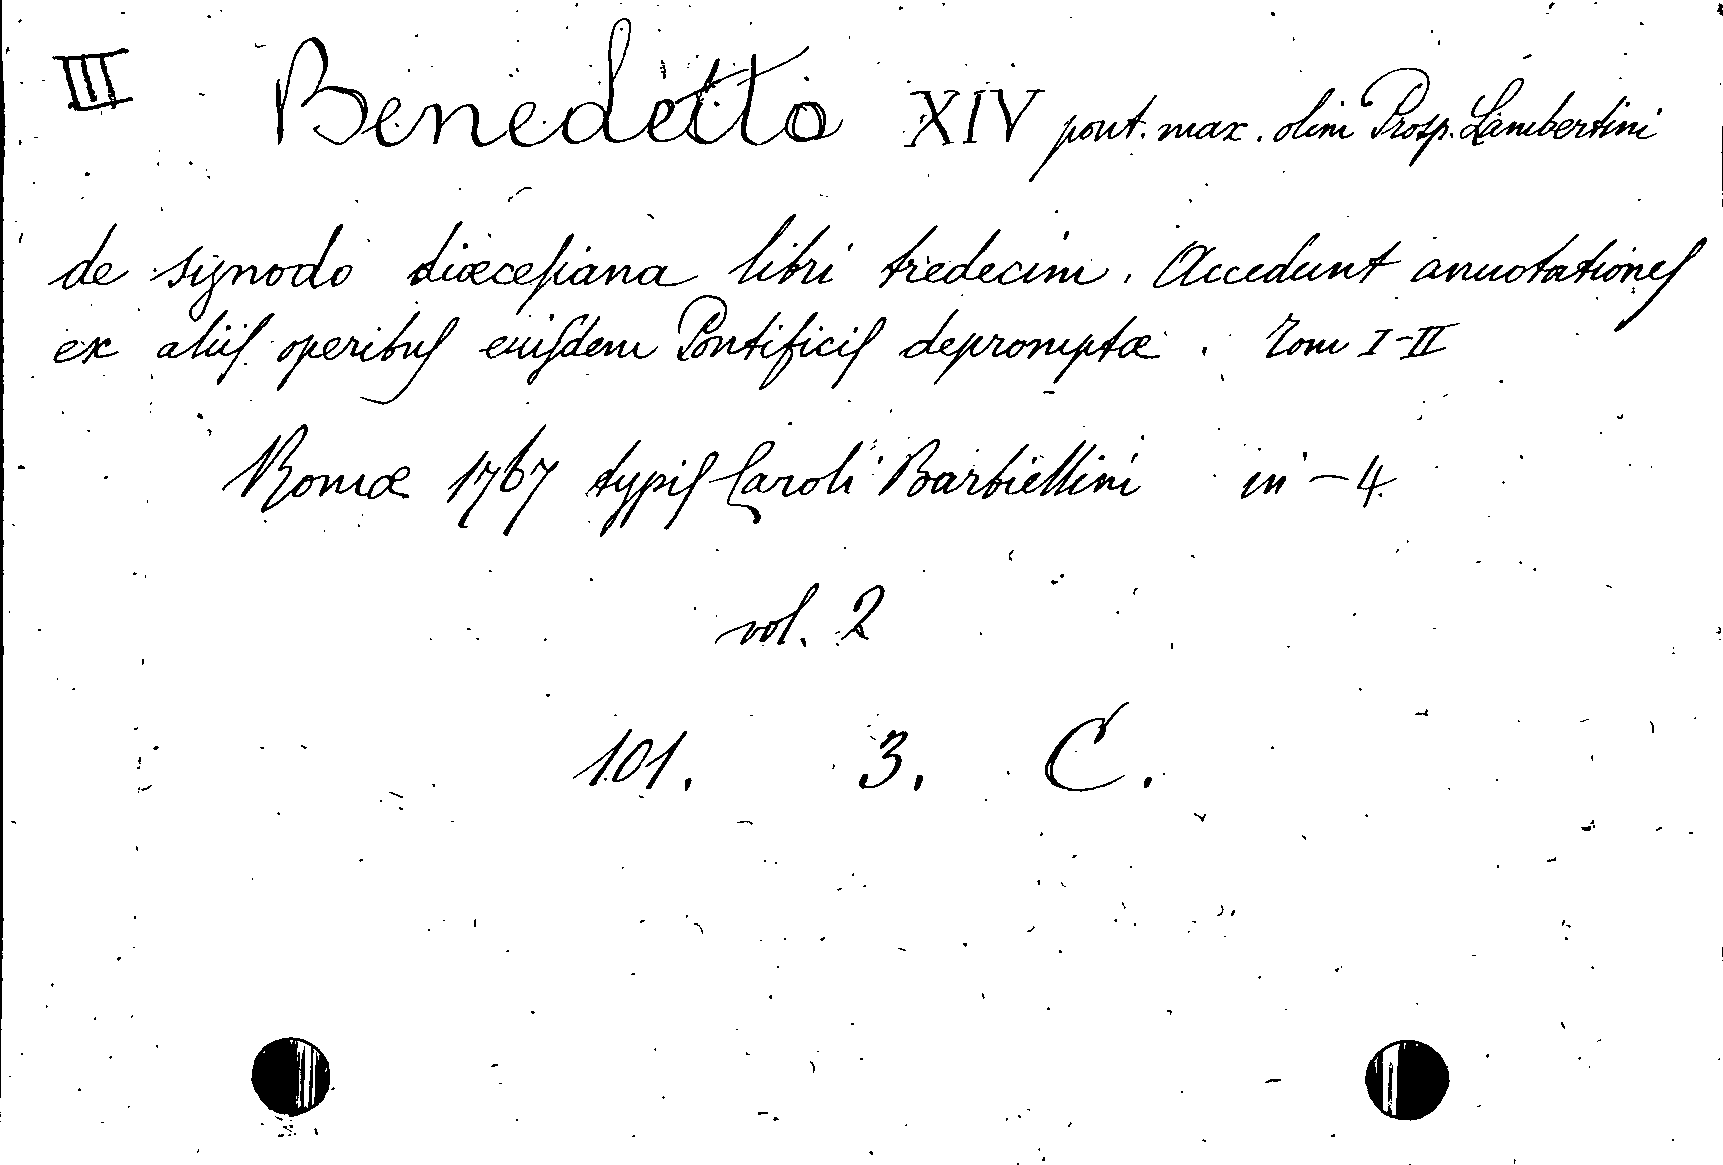 III Benedetto XIV pont. max. olim Prosp. Lambertini
de synodo diœcesiana libri tredecim. Accedunt annotationes
ex aliis operibus eiusdem Pontificis depromptæ. Tom I-II
Romæ 1767 typis Caroli Barbiellini in-4.
vol. 2
101. 3. C.